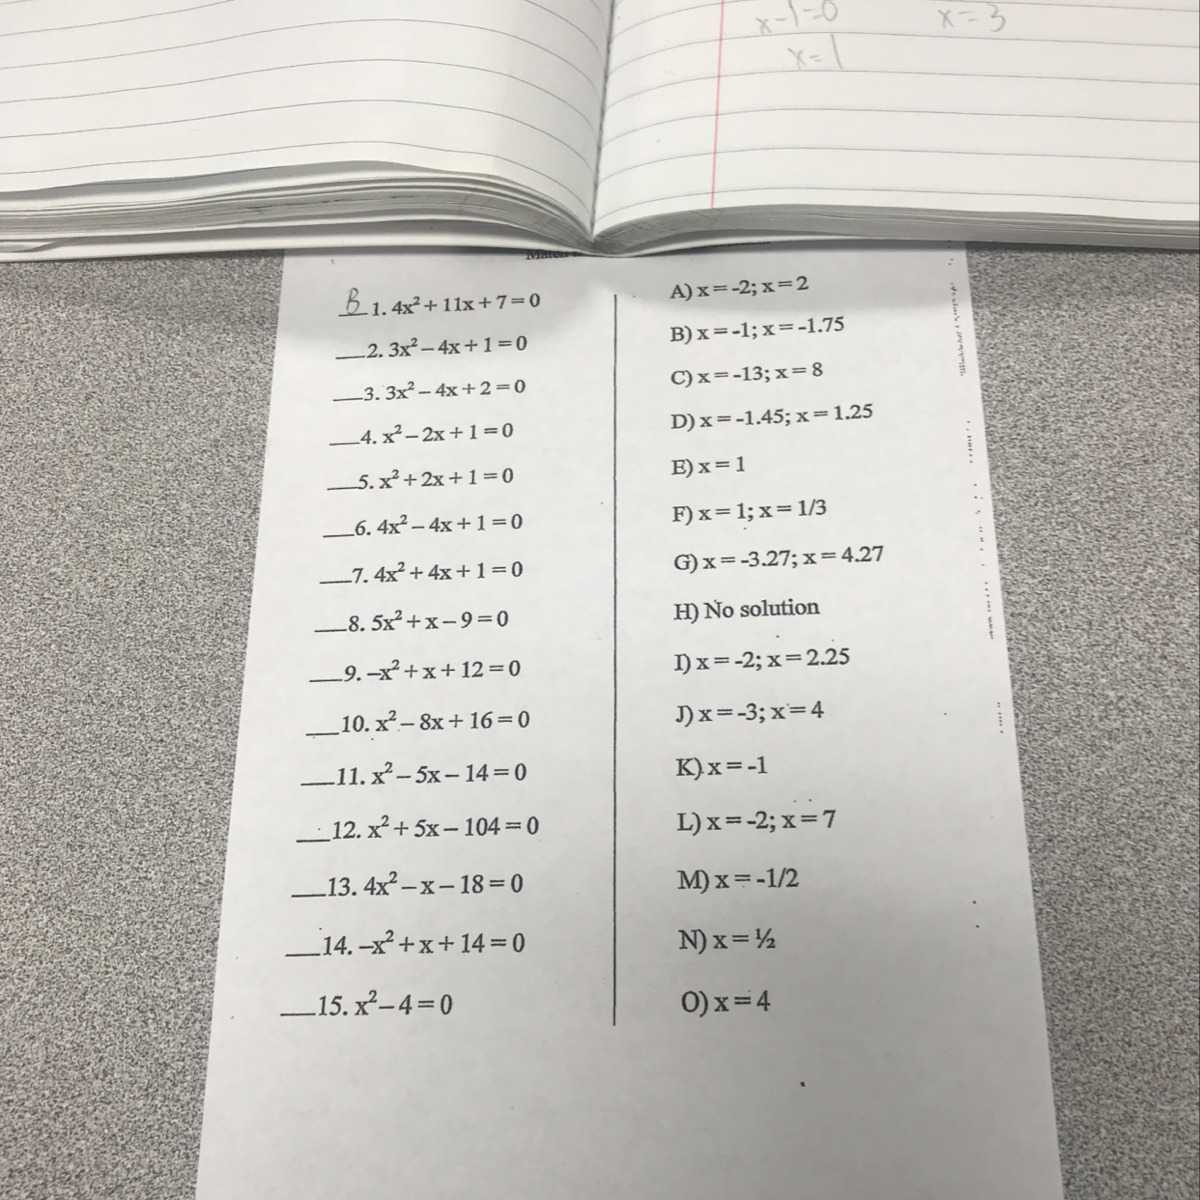 x-1=0 x=3
x=1
B 1. 4x² + 11x + 7 = 0
2. 3x² – 4x + 1 = 0
3. 3x² – 4x + 2 = 0
4. x² – 2x + 1 = 0
5. x² + 2x + 1 = 0
6. 4x² – 4x + 1 = 0
7. 4x² + 4x + 1 = 0
8. 5x² + x – 9 = 0
9. –x² + x + 12 = 0
10. x² – 8x + 16 = 0
11. x² – 5x – 14 = 0
12. x² + 5x – 104 = 0
13. 4x² – x – 18 = 0
14. –x² + x + 14 = 0
15. x² – 4 = 0
A) x = -2; x = 2
B) x = -1; x = -1.75
C) x = -13; x = 8
D) x = -1.45; x = 1.25
E) x = 1
F) x = 1; x = 1/3
G) x = -3.27; x = 4.27
H) No solution
I) x = -2; x = 2.25
J) x = -3; x = 4
K) x = -1
L) x = -2; x = 7
M) x = -1/2
N) x = ½
O) x = 4